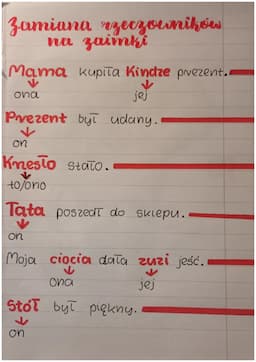 Zamiana rzeczowników
na zaimki
Mama kupiła Kindze prezent.
ona jej
Prezent był udany.
on
Krzesło stało.
to/ono
Tata poszedł do sklepu.
on
Moja ciocia dała zuzi jeść.
ona jej
Stół był piękny.
on